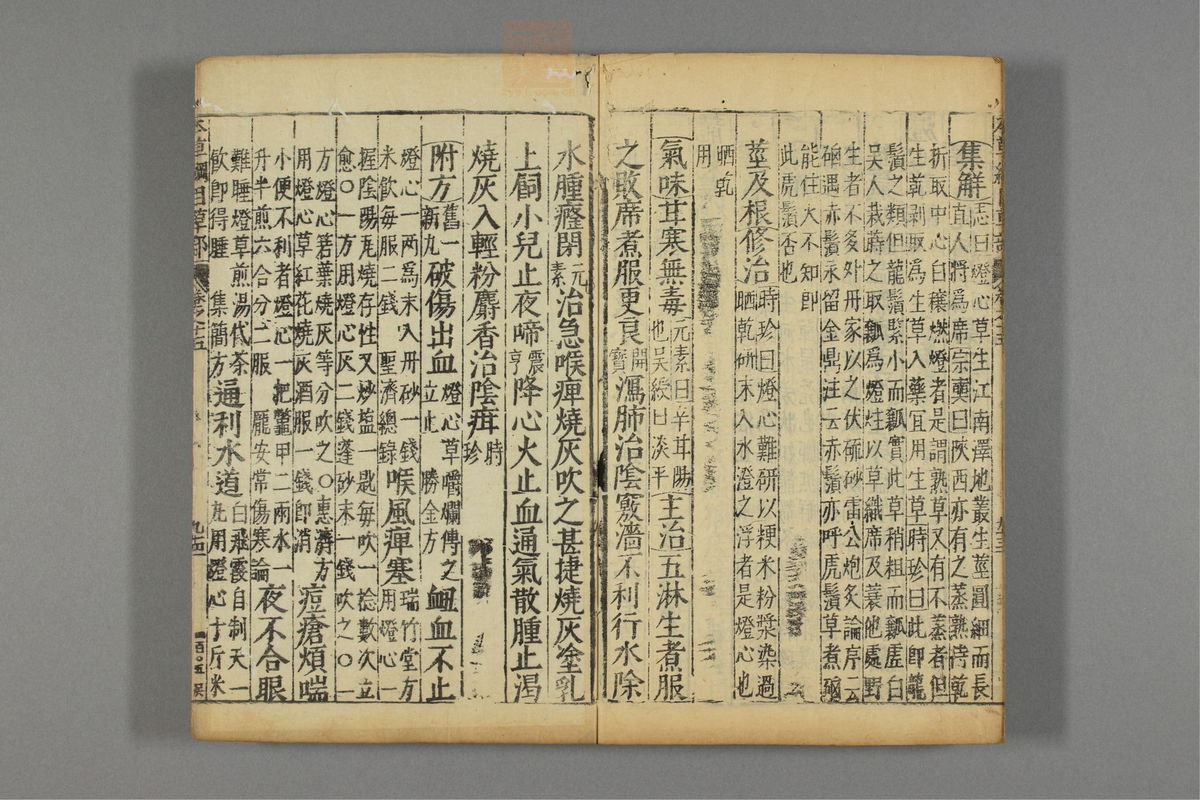 集解志曰燈心草生江南澤地叢生莖圓細而長
直人將為席宗奭曰陝西亦有之蒸熟待乾
折取中心白穰燃燈者是謂熟草又有不蒸者但
生乾剝取為生草入藥宜用生草時珍曰此即龍
鬚之類但龍鬚緊小而瓤實此草稍粗而瓤虛白
吳人栽蒔之取瓤為燈炷以草織席及蓑他處野
生者不多外丹家以之伏硫砂雷公炮炙論序云
硇遇赤鬚永留金鼎注云赤鬚亦呼虎鬚草煮硇
能住火不知即
此虎鬚否也
莖及根修治時珍曰燈心難研以粳米粉漿染過
晒乾研末入水澄之浮者是燈心也
晒乾
用
氣味甘寒無毒元素曰辛甘陽
也吳綬曰淡平主治五淋生煮服
之敗席煮服更良開
寶瀉肺治陰竅濇不利行水除
水腫癃閉元
素治急喉痺燒灰吹之甚捷燒灰塗乳
上飼小兒止夜啼震
亨降心火止血通氣散腫止渴
燒灰入輕粉麝香治陰疳時
珍
附方舊一
新九破傷出血燈心草嚼爛傅之
立止 勝金方衄血不止
燈心一兩為末入丹砂一錢
米飲每服二錢 聖濟總錄喉風痺塞瑞竹堂方
用燈心一
握陰陽瓦燒存性又炒鹽一匙每吹一捻數次立
愈〇一方用燈心灰二錢蓬砂末一錢吹之〇一
方燈心箬葉燒灰等分吹之〇惠濟方
用燈心草紅花燒灰酒服一錢即消痘瘡煩喘
小便不利者燈心一把鼈甲二兩水一
升半煎六合分二服 龐安常傷寒論夜不合眼
難睡燈草煎湯代茶
飲即得睡 集簡方通利水道白飛霞自制天一
丸用燈心十斤米